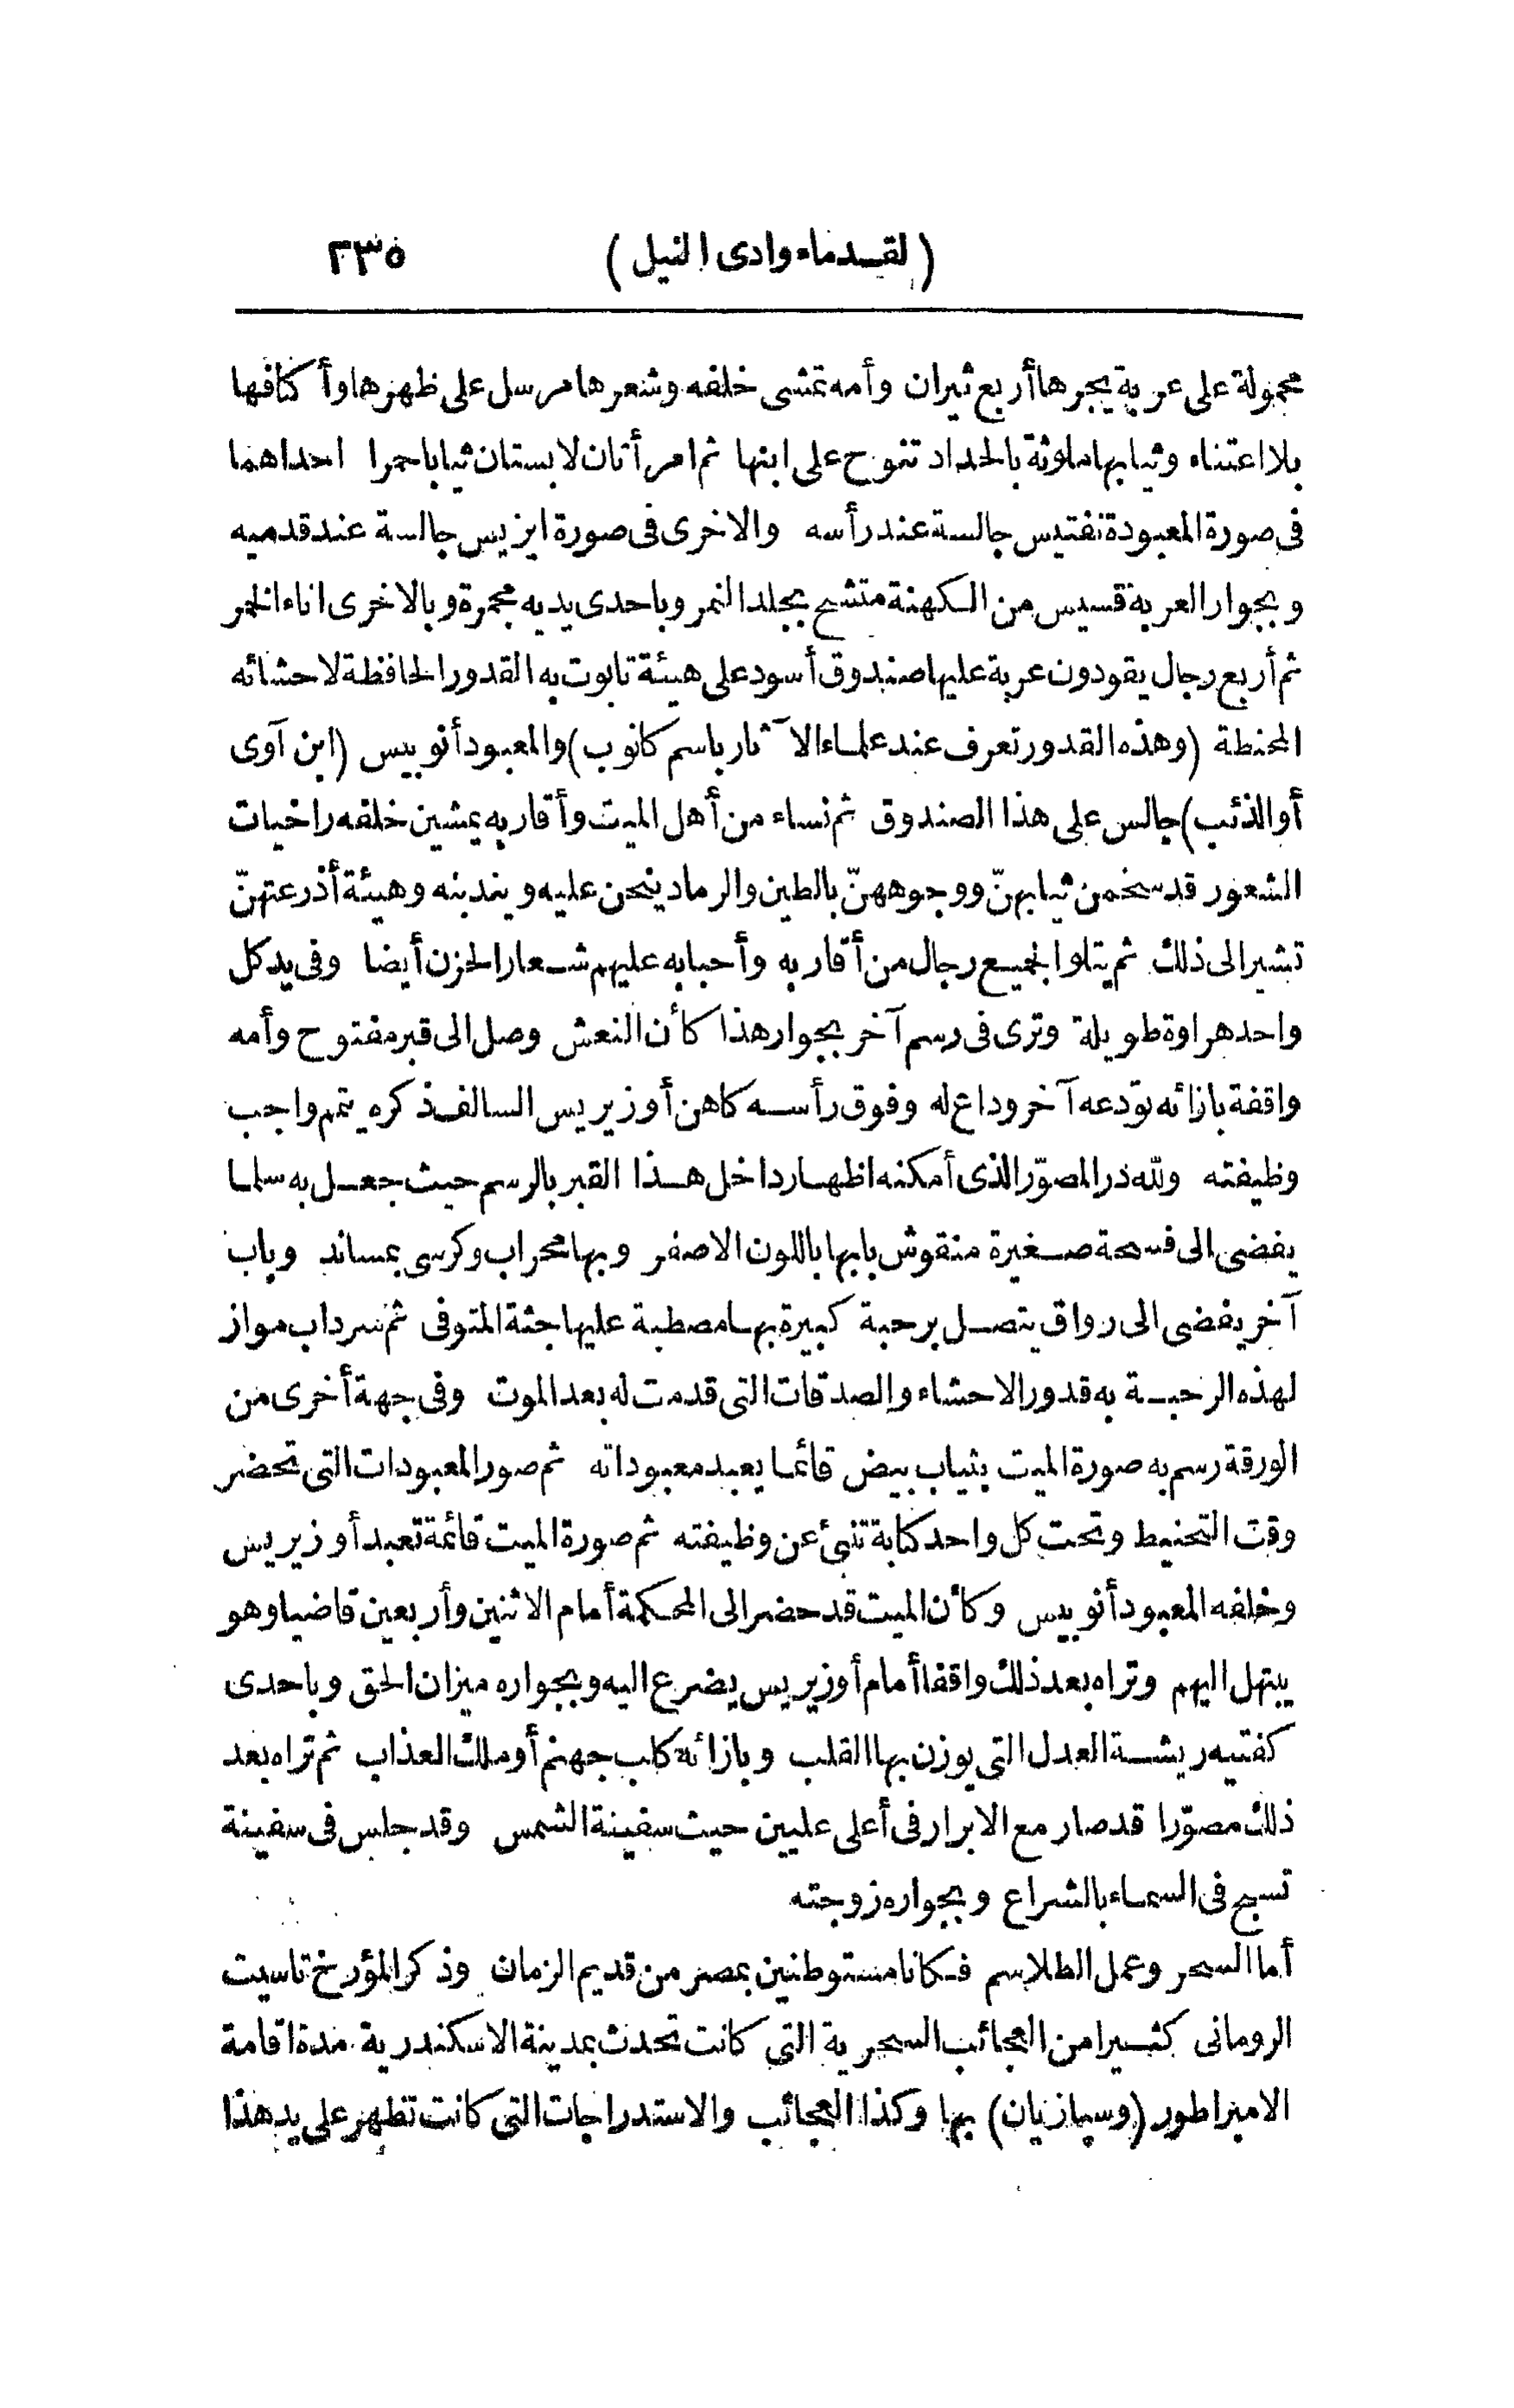 (لقدماء وادى النيل) ٢٣٥
محمولة على عربة يجرها أربع ثيران وأمه تمشى خلفه وشعرها مرسل على ظهرها وأكتافها
بلا اعتناء وثيابها ملوثة بالحداد تنوح على ابنها ثم امرأتان لابستان ثيابا حمرا احداهما
فى صورة المعبودة نفتيس جالسة عند رأسه والاخرى فى صورة ايزيس جالسة عند قدميه
وبجوار العربة قسيس من الكهنة متشح بجلد النمر وباحدى يديه مجمرة وبالاخرى اناء الخمر
ثم أربع رجال يقودون عربة عليها صندوق أسود على هيئة تابوت به القدور الحافظة لاحشائه
المحنطة (وهذه القدور تعرف عند علماء الآثار باسم كانوب) والمعبود أنوبيس (ابن آوى
أو الذئب) جالس على هذا الصندوق ثم نساء من أهل الميت وأقاربه يمشين خلفه راخيات
الشعور قد سخمن ثيابهنّ ووجوههنّ بالطين والرماد ينحن عليه ويندبنه وهيئة أذرعتهنّ
تشير الى ذلك ثم يتلو الجميع رجال من أقاربه وأحبابه عليهم شعار الحزن أيضا وفى يد كل
واحد هراوة طويلة وترى فى رسم آخر بجوار هذا كأن النعش وصل الى قبر مفتوح وأمه
واقفة بازائه تودّعه آخر وداع له وفوق رأسه كاهن أوزيريس السالف ذكره يتمم واجب
وظيفته ولله در المصوّر الذى أمكنه اظهار داخل هذا القبر بالرسم حيث جعل به سلما
يفضى الى فسحة صغيرة منقوش بابها باللون الاصفر وبها محراب وكرسى بمساند وباب
آخر يفضى الى رواق يتصل برحبة كبيرة بها مصطبة عليها جثة المتوفى ثم سرداب مواز
لهذه الرحبة به قدور الاحشاء والصدقات التى قدمت له بعد الموت وفى جهة أخرى من
الورقة رسم به صورة الميت بثياب بيض قائما يعبد معبوداته ثم صور المعبودات التى تحضر
وقت التحنيط وتحت كل واحد كتابة تنبئ عن وظيفته ثم صورة الميت قائمة تعبد أوزيريس
وخلفه المعبود أنوبيس وكأن الميت قد حضر الى المحكمة أمام الاثنين وأربعين قاضيا وهو
يبتهل اليهم وتراه بعد ذلك واقفا أمام أوزيريس يضرع اليه وبجواره ميزان الحق وباحدى
كفتيه ريشة العدل التى يوزن بها القلب وبازائه كلب جهنم أو ملك العذاب ثم تراه بعد
ذلك مصوّرا قد صار مع الابرار فى أعلى عليين حيث سفينة الشمس وقد جلس فى سفينة
تسبح فى السماء بالشراع وبجواره زوجته
أما السحر وعمل الطلاسم فكانا مستوطنين بمصر من قديم الزمان وذكر المؤرخ تاسيت
الرومانى كثيرا من العجائب السحرية التى كانت تحدث بمدينة الاسكندرية مدة اقامة
الامبراطور (وسپازيان) بها وكذا العجائب والاستدراجات التى كانت تظهر على يد هذا